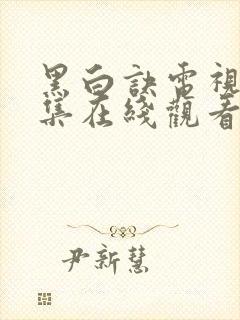 黑白訣電視
集在綫觀看
尹新慧